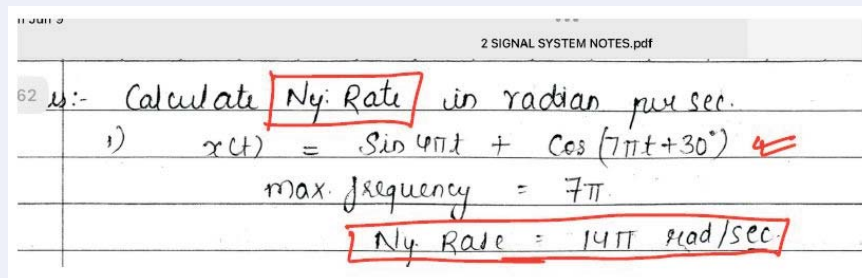 2 SIGNAL SYSTEM NOTES.pdf
62 es:- Calculate Ny. Rate in radian per sec.
1) x(t) = Sin 4πt + Cos (7πt+30°)
max. frequency = 7π.
Ny. Rate = 14π rad/sec.